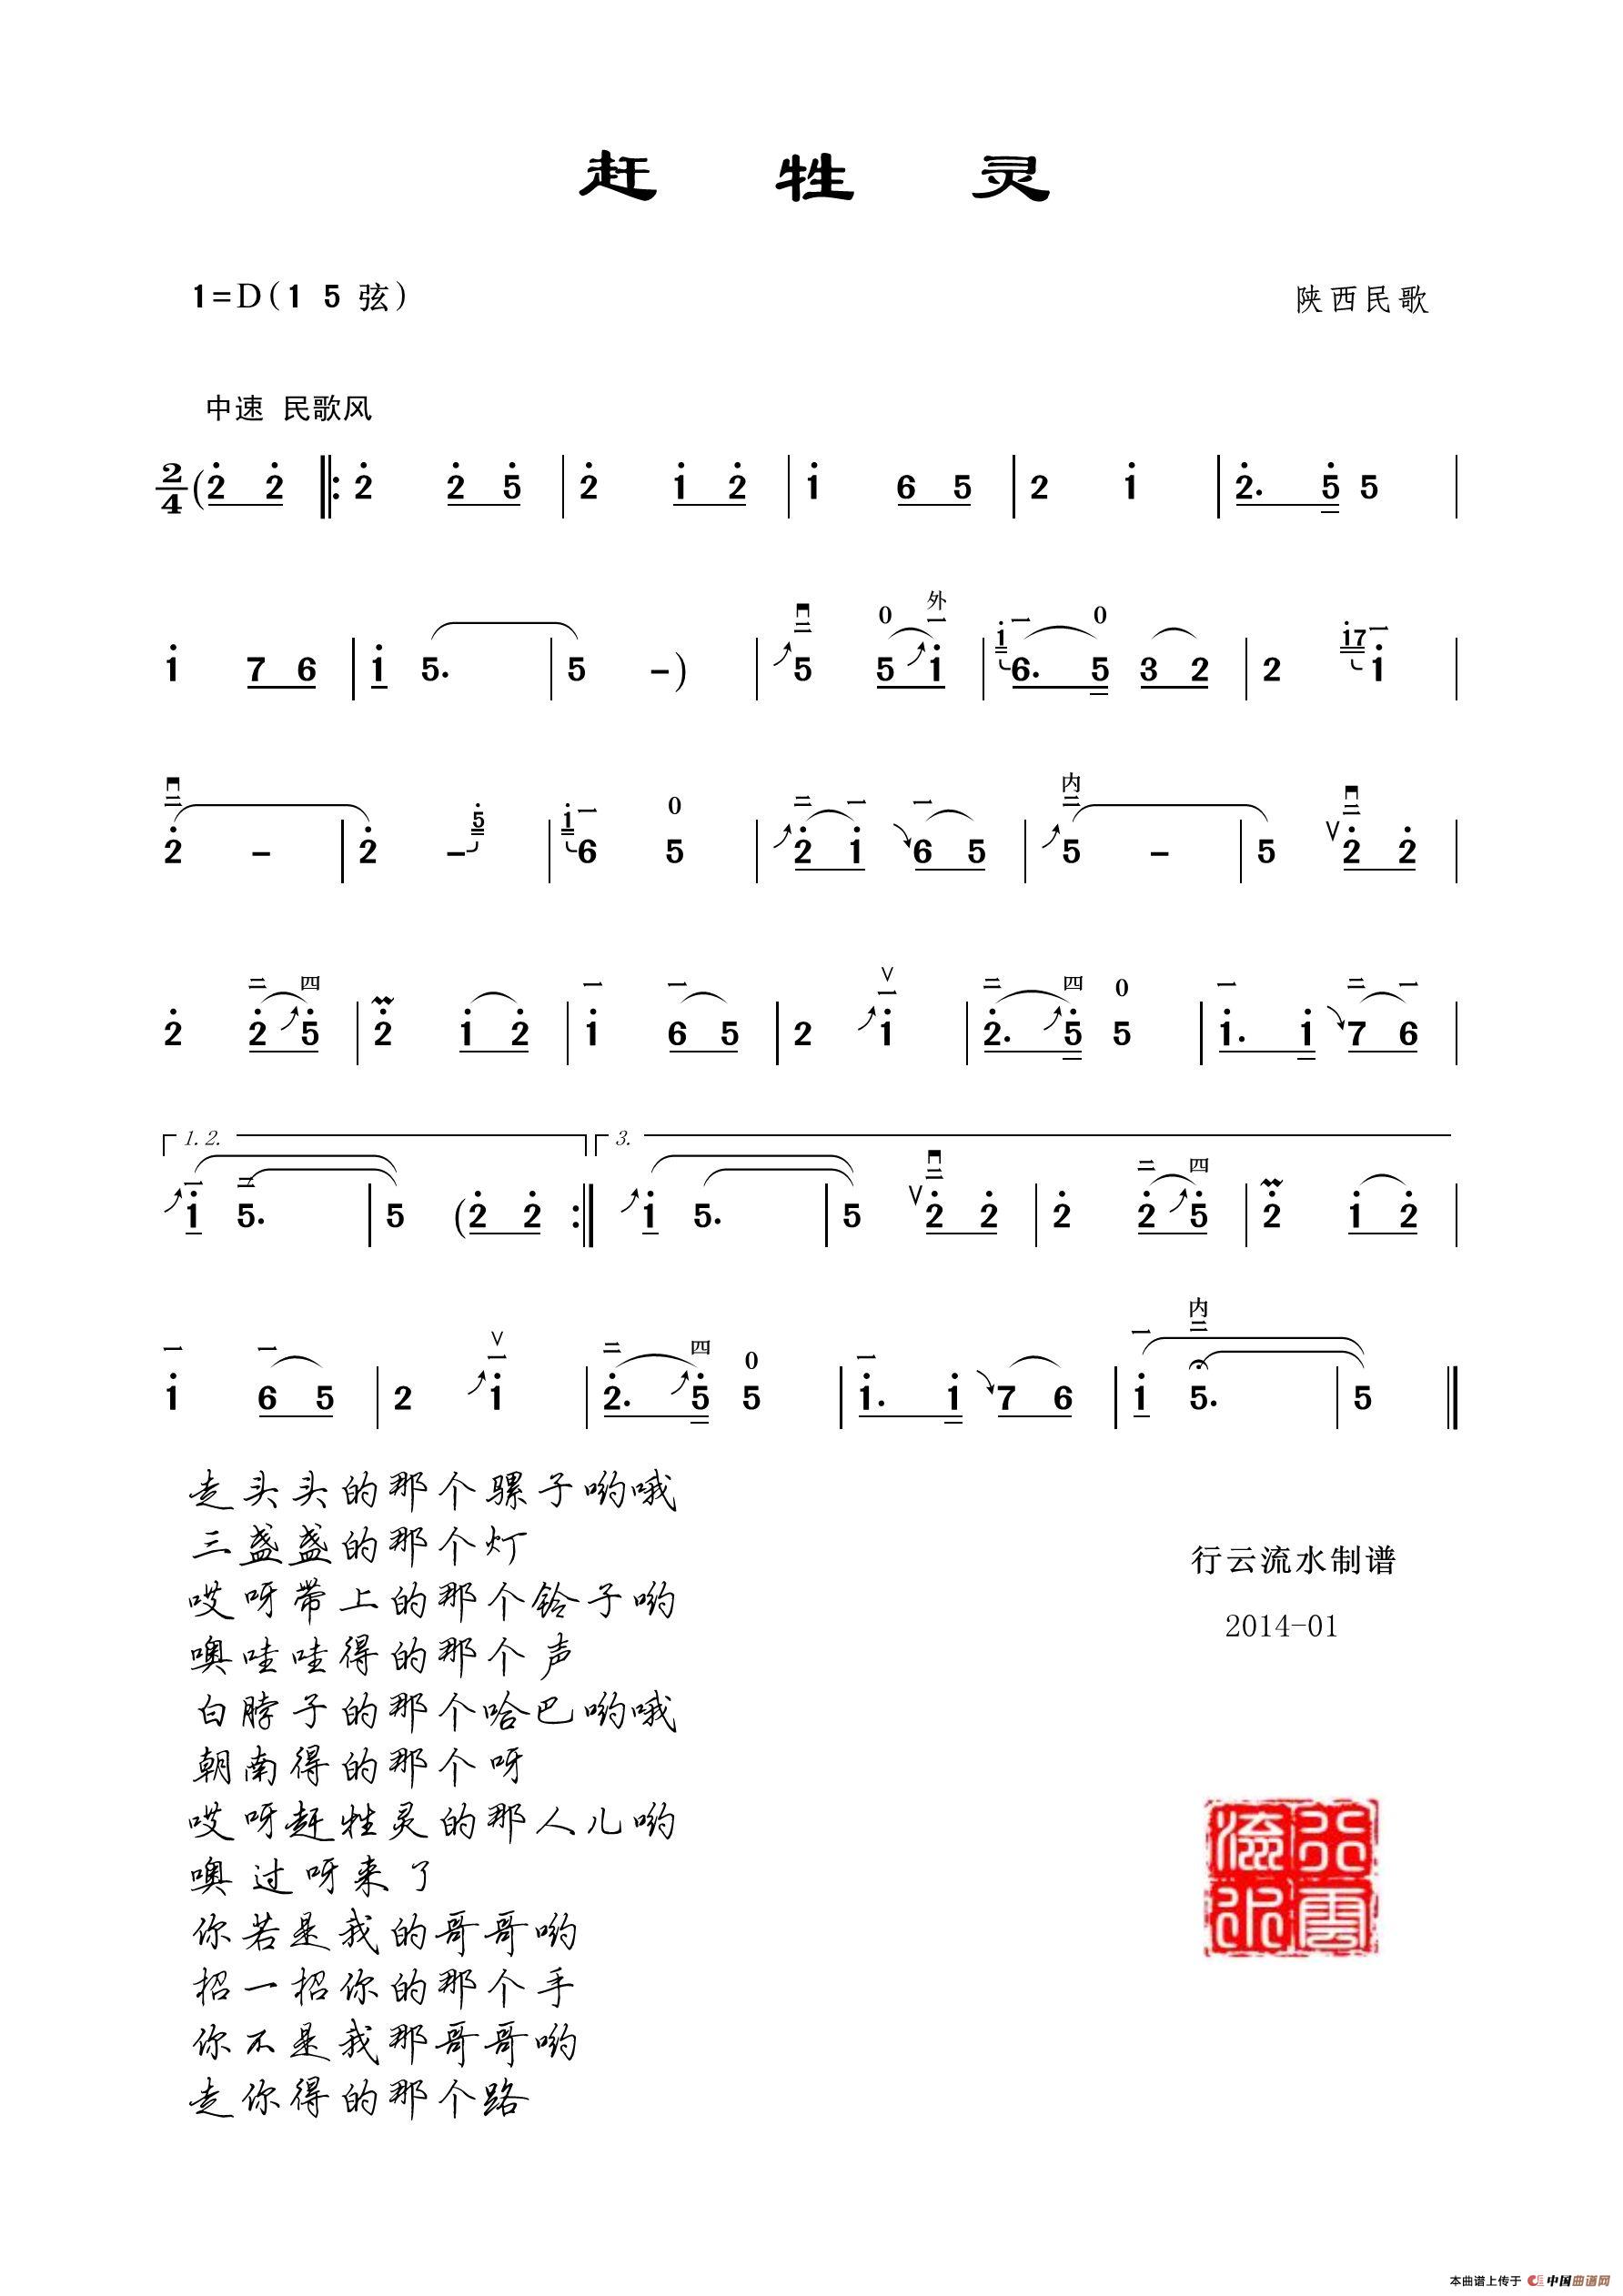 赶 牲 灵
1=D(1 5 弦)
陕西民歌
中速 民歌风
2/4 (2̇ 2̇ ‖: 2̇ 2̇ 5̇ | 2̇ 1̇ 2̇ | 1̇ 6 5 | 2 1̇ | 2̇. 5̇ 5 |
外
1̇ 7 6 | 1̇ 5. | 5 -) | 5 5 1̇ | 6. 5 3 2 | 2 1̇ |
内
2̇ - | 2̇ - | 6 5 | 2̇ 1̇ 6 5 | 5 - | 5 2̇ 2̇ |
二 四 一 一 一 二 四 0 一 二 一
2̇ 2̇ 5̇ | 2̇ 1̇ 2̇ | 1̇ 6 5 | 2 1̇ | 2̇. 5̇ 5 | 1̇. 1̇ 7 6 |
1. 2. 3.
1̇ 5. | 5 (2̇ 2̇ :‖ 1̇ 5. | 5 2̇ 2̇ | 2̇ 2̇ 5̇ | 2̇ 1̇ 2̇ |
内
1̇ 6 5 | 2 1̇ | 2̇. 5̇ 5 | 1̇. 1̇ 7 6 | 1̇ 5. | 5 ‖
走头头的那个骡子哟哦
三盏盏的那个灯
哎呀带上的那个铃子哟
噢哇哇得的那个声
白脖子的那个哈巴哟哦
朝南得的那个呀
哎呀赶牲灵的那人儿哟
噢过呀来了
你若是我的哥哥哟
招一招你的那个手
你不是我那哥哥哟
走你得的那个路
行云流水制谱
2014-01
行雲流水
本曲谱上传于 中国曲谱网